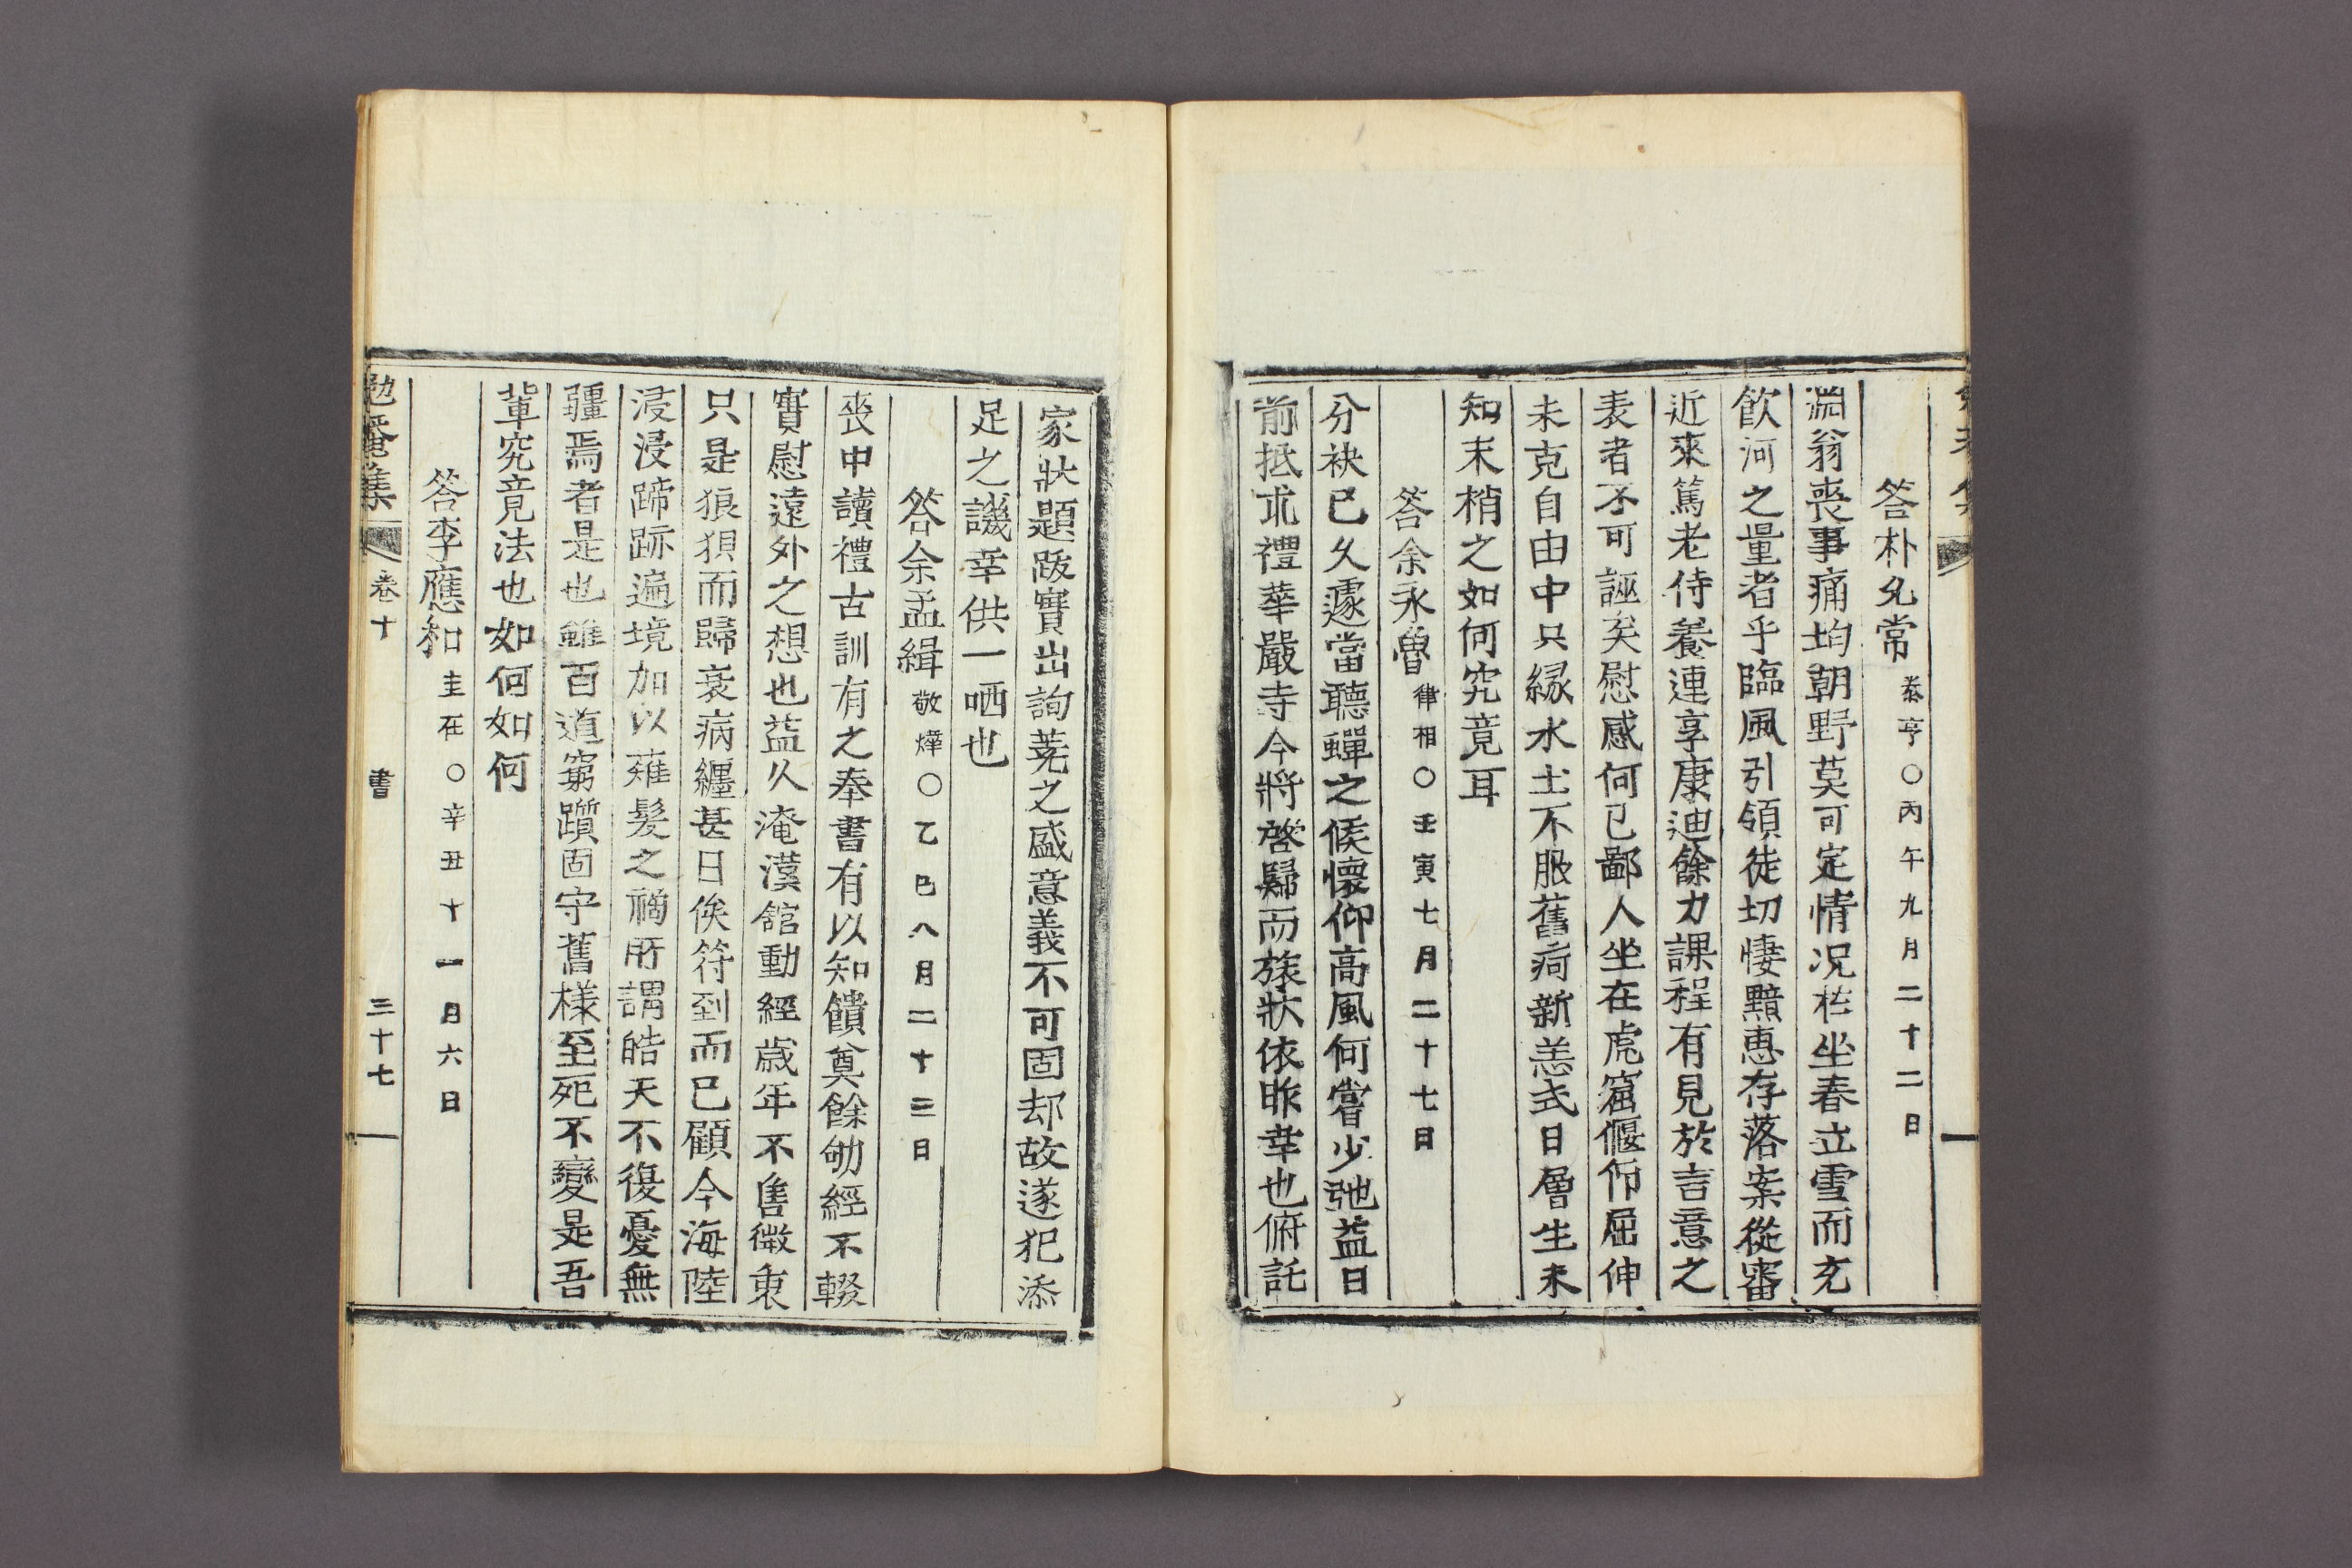 答朴允常 泰亨○丙午九月二十二日
淵翁喪事痛均朝野莫可定情况茫坐春立雪而充
飮河之量者乎臨風引領徒切悽黯惠存落案從審
近來篤老侍養連享康迪餘力課程有見於言意之
表者不可誣矣慰感何已鄙人坐在虎窟偃仰屈伸
未克自由中只緣水土不服舊痾新恙式日層生未
知末梢之如何究竟耳
答余永魯 律相○壬寅七月二十七日
分袂已久遽當聽蟬之候懷仰高風何嘗少弛益日
前抵求禮華嚴寺今將啓歸而旅狀依昨幸也俯託
家狀題跋實出詢蕘之盛意義不可固却故遂犯添
足之譏幸供一哂也
答余孟緝 敬燁○乙巳八月二十三日
喪中讀禮古訓有之奉書有以知饋奠餘劬經不輟
實慰遠外之想也益久淹漢舘動經歲年不售微衷
只是狼狽而歸衰病纏甚日俟符到而已顧今海陸
浸浸蹄跡遍境加以薙髮之禍所謂皓天不復憂無
疆焉者是也雖百道窮躓固守舊樣至死不變是吾
輩究竟法也如何如何
答李應和 圭在○辛丑十一月六日
勉菴集 卷十 書 三十七